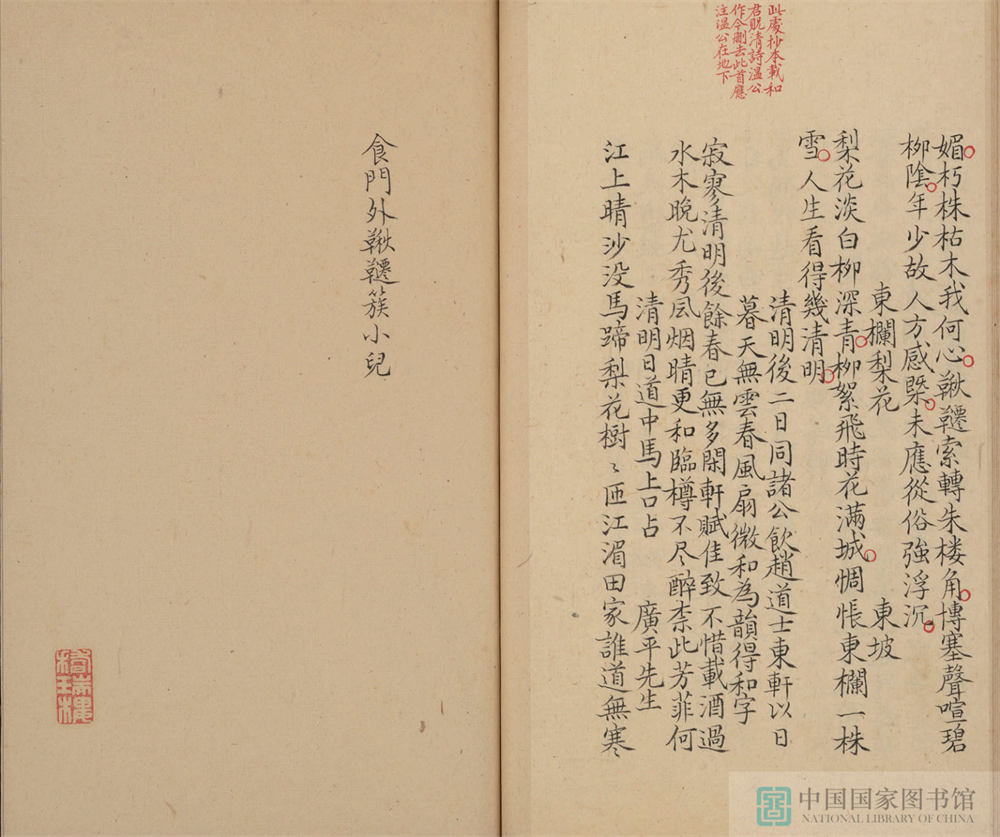 此處抄本載和
君貺清詩溫公
作今刪去此首應
注溫公在地下
媚朽株枯木我何心鞦韆索轉朱楼角博塞聲喧碧
柳陰年少故人方感槩未應從俗強浮沉
東欄梨花 東坡
梨花淡白柳深青柳絮飛時花滿城惆悵東欄一株
雪人生看得幾清明
清明後二日同諸公飲趙道士東軒以日
暮天無雲春風扇微和為韻得和字
寂寥清明後餘春已無多閑軒賦佳致不惜載酒過
水木晚尤秀风烟晴更和臨樽不尽醉柰此芳菲何
清明日道中馬上口占 廣平先生
江上晴沙没馬蹄梨花樹〻匝江湄田家誰道無寒
食門外鞦韆簇小兒
中国国家图书馆
NATIONAL LIBRARY OF CHINA